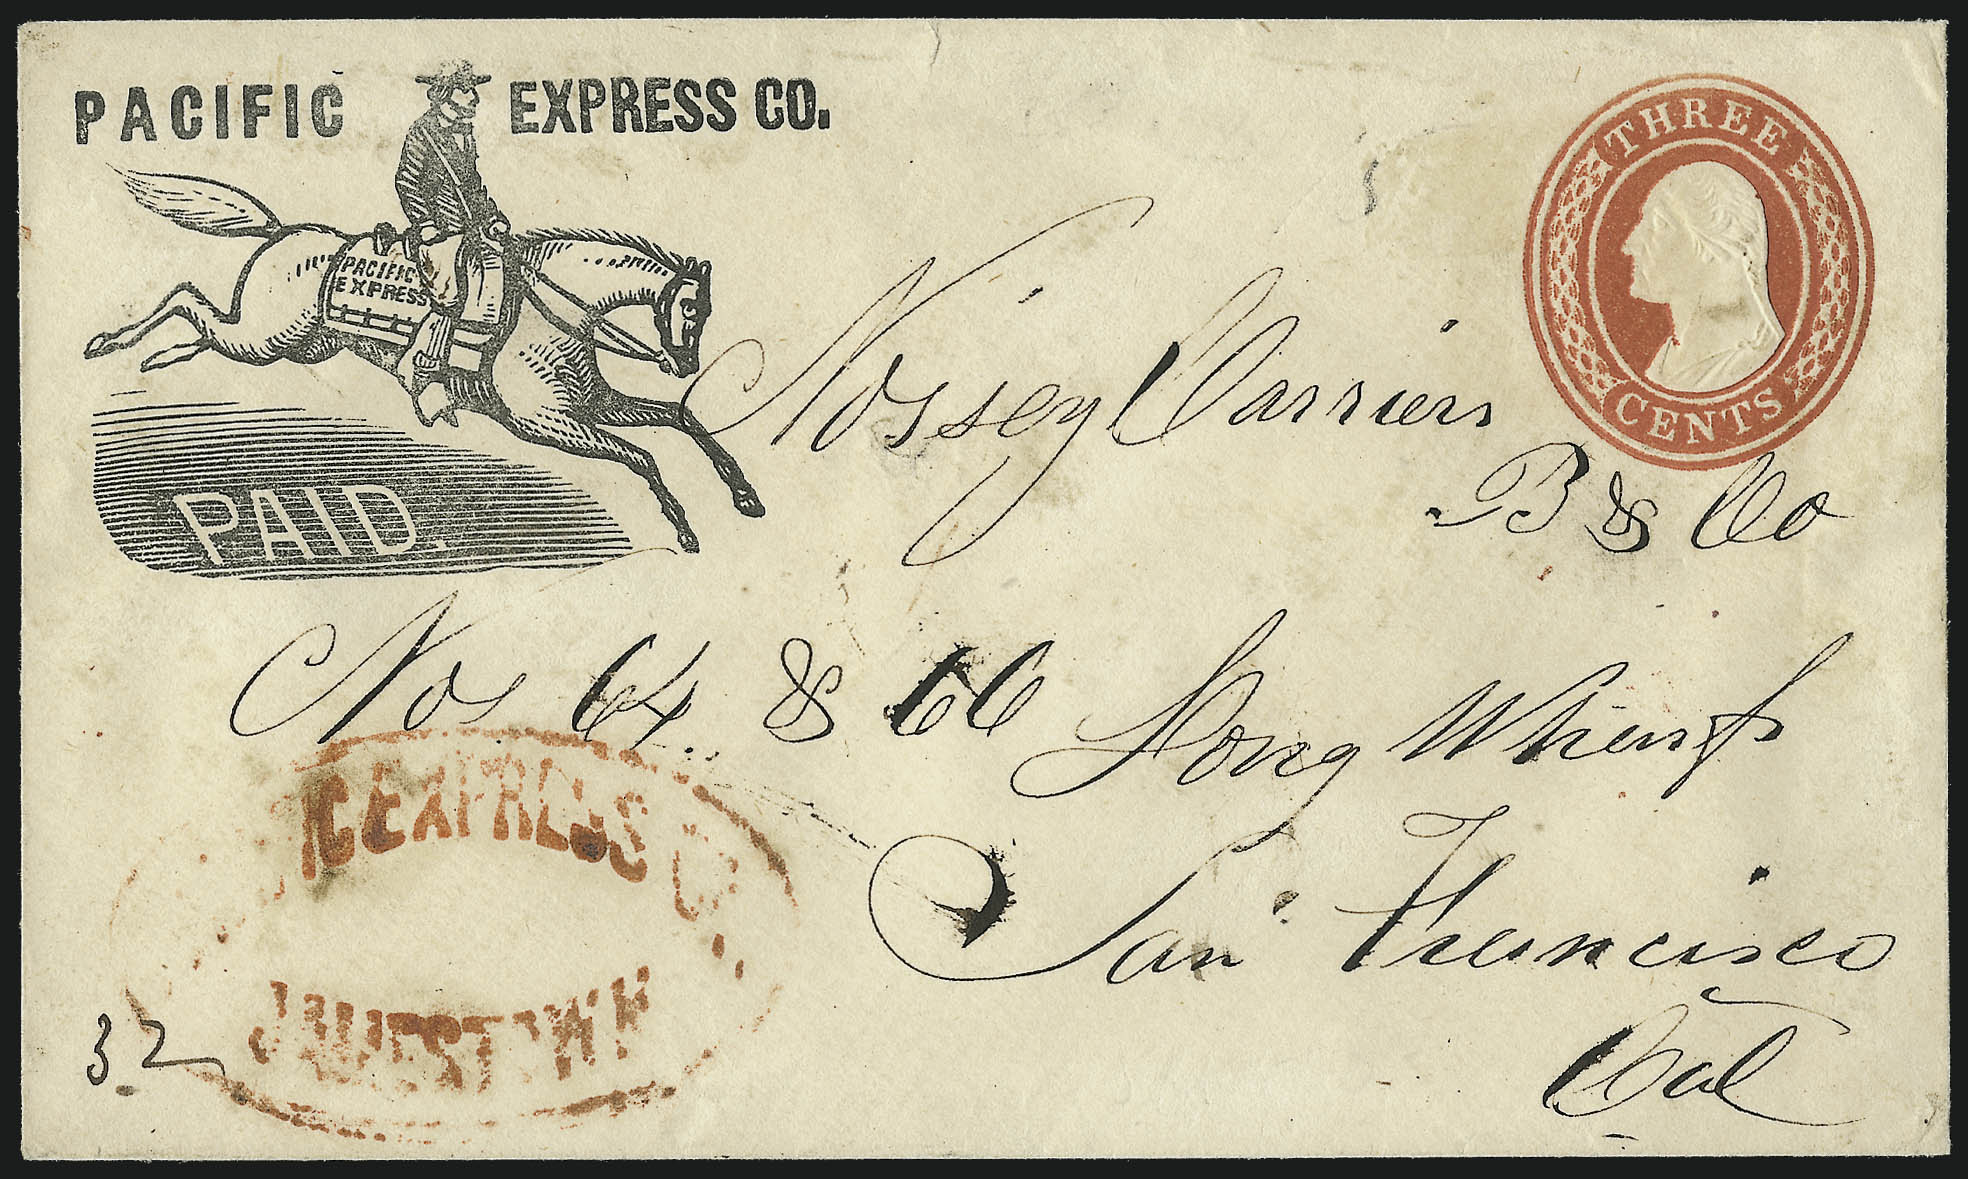 PACIFIC EXPRESS CO.
PACIFIC
EXPRESS
PAID.
THREE
CENTS
B & Co
Nos 64 & 66 Long Wharf
San Francisco
Cal
IC EXPRESS C
JAMESTOWN
32